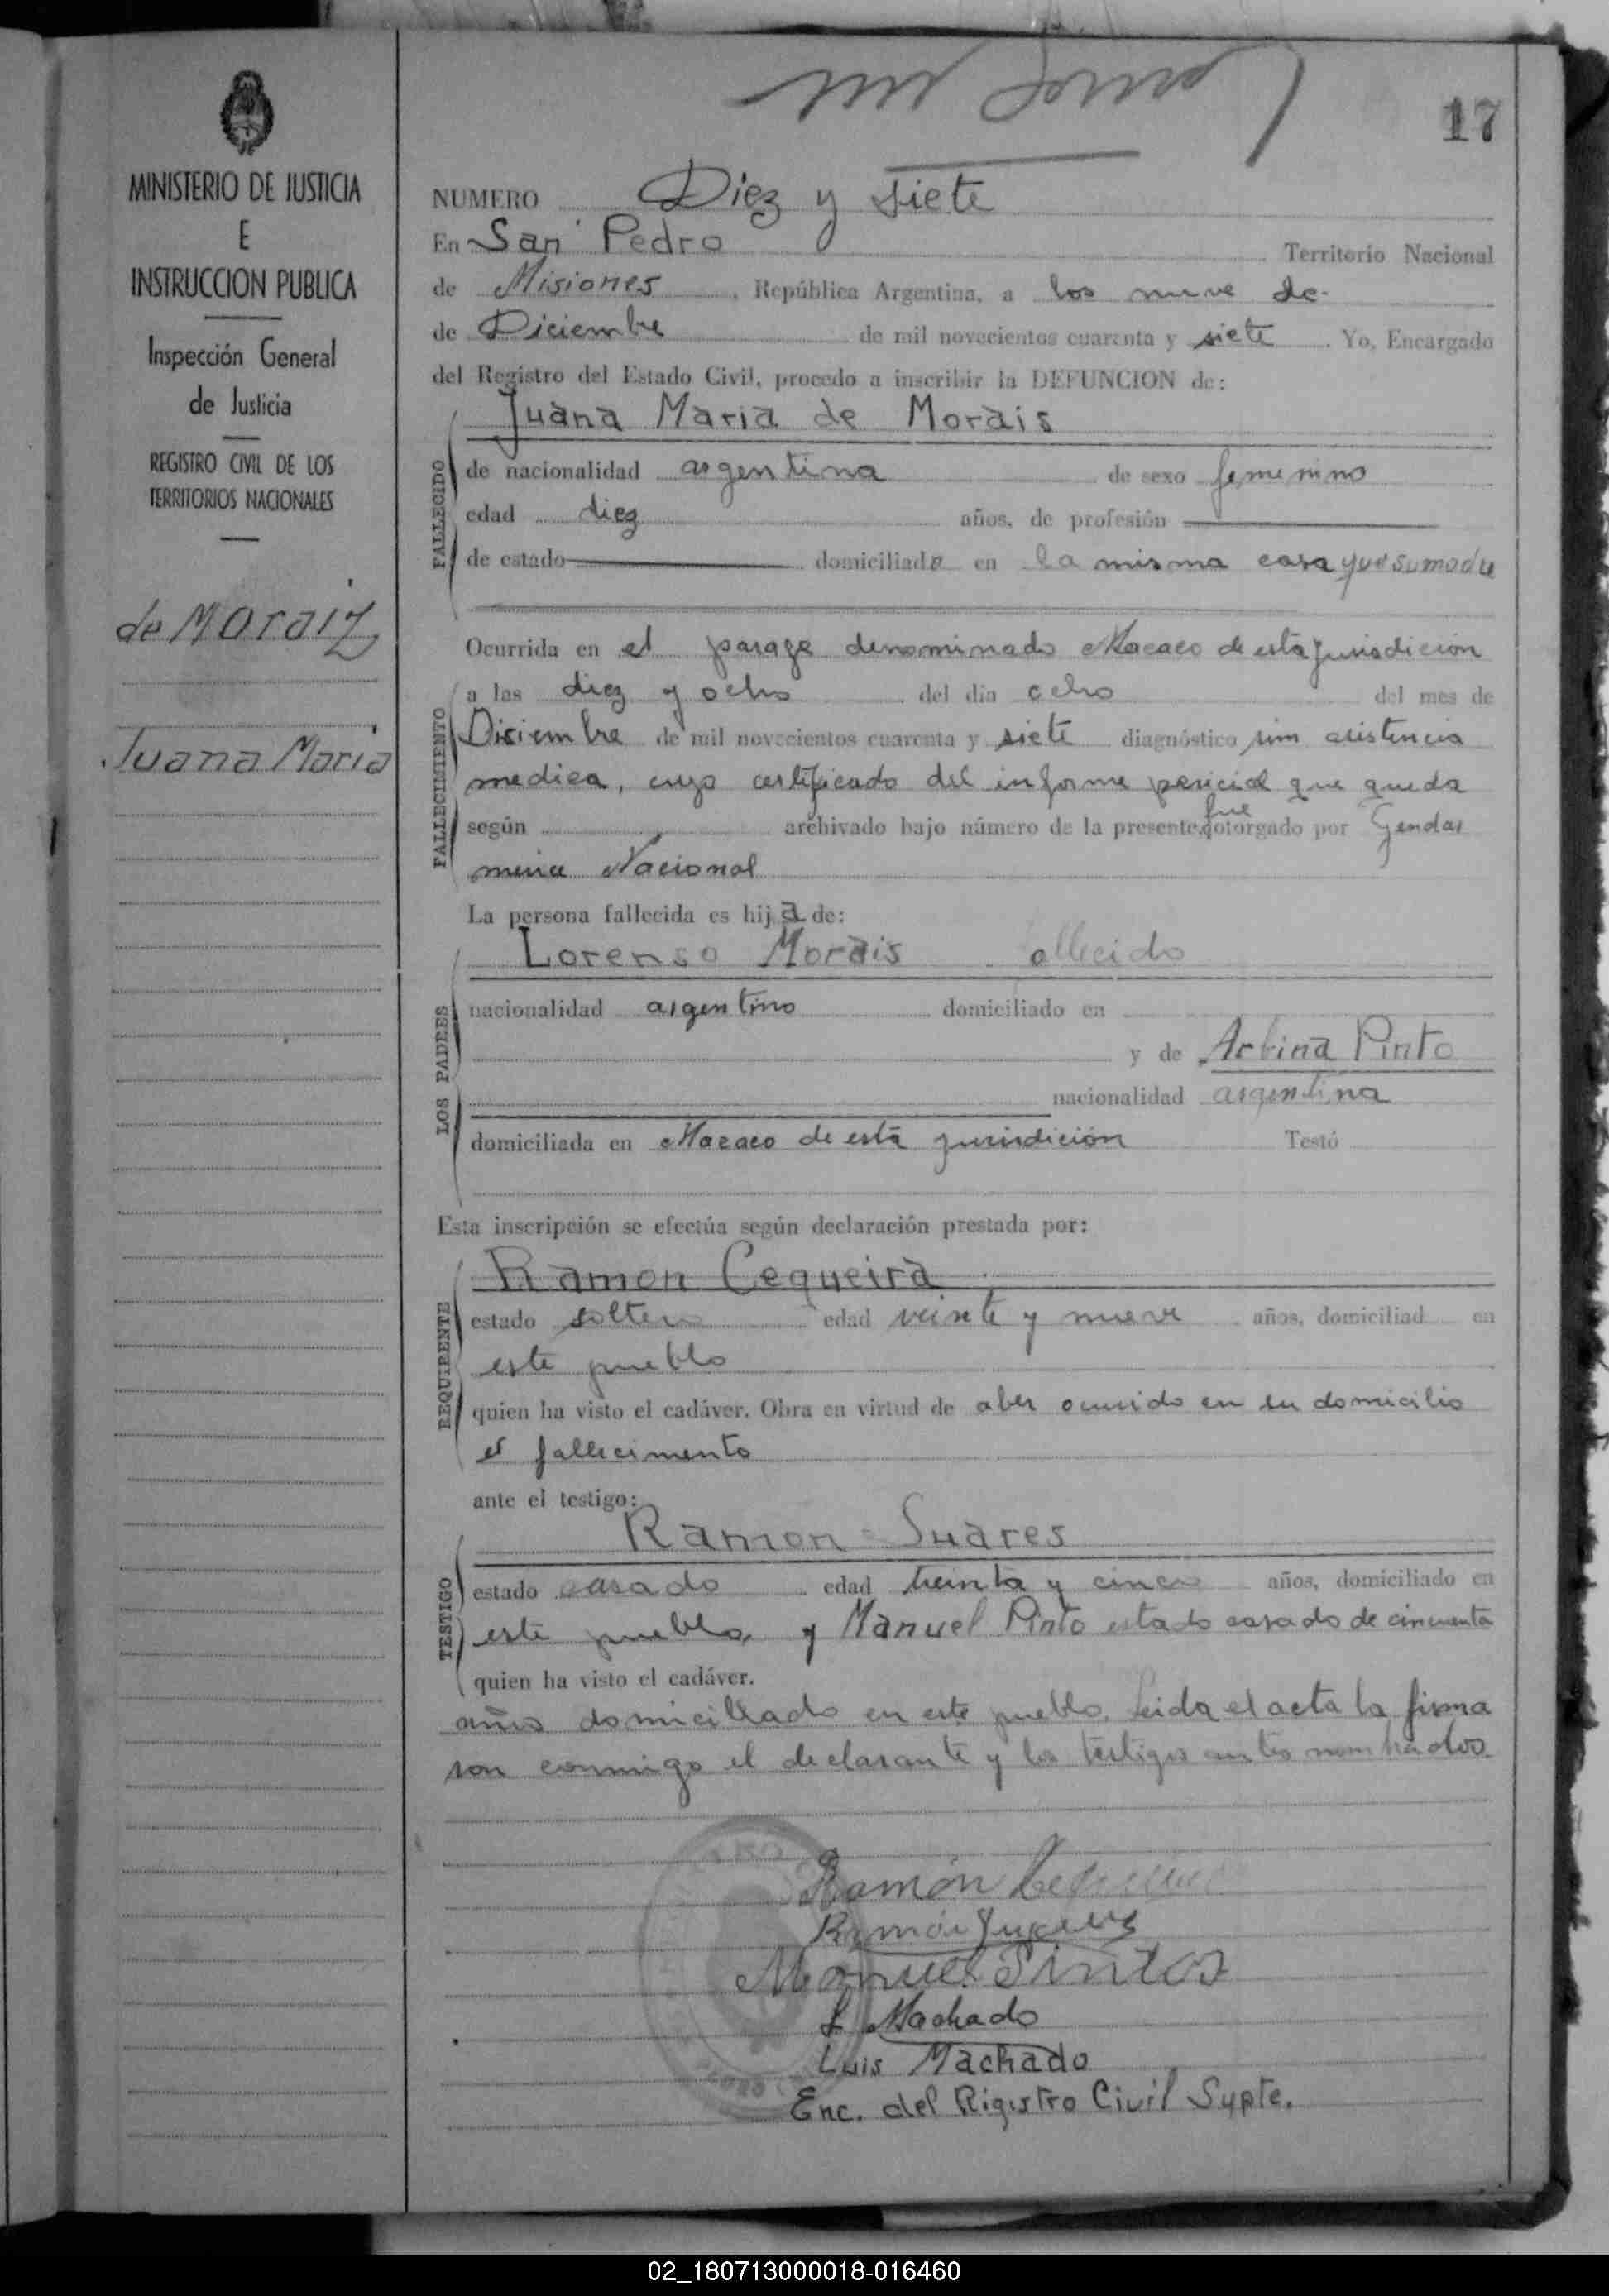 17
MINISTERIO DE JUSTICIA
E
INSTRUCCION PUBLICA
Inspección General
de Justicia
REGISTRO CIVIL DE LOS
TERRITORIOS NACIONALES
de Moraiz
Juana Maria
NUMERO Diez y siete
En San Pedro Territorio Nacional
de Misiones, República Argentina, a los nueve de
de Diciembre de mil novecientos cuarenta y siete. Yo, Encargado
del Registro del Estado Civil, procedo a inscribir la DEFUNCION de:
Juana Maria de Morais
FALLECIDO
de nacionalidad argentina de sexo femenino
edad diez años, de profesión
de estado domiciliada en la misma casa que su madre
Ocurrida en el parage denominado Macaco de esta jurisdicion
FALLECIMIENTO
a las diez y ocho del día ocho del mes de
Diciembre de mil novecientos cuarenta y siete diagnóstico sin asistencia
medica, cuyo certificado del informe pericial que queda
según archivado bajo número de la presente fue otorgado por Gendar
meria Nacional
La persona fallecida es hija de:
LOS PADRES
Lorenso Morais allecido
nacionalidad argentino domiciliado en
y de Arbina Pinto
nacionalidad argentina
domiciliada en Macaco de esta jurisdición Testó
Esta inscripción se efectúa según declaración prestada por:
REQUIRENTE
Ramon Cequeira
estado soltero edad veinte y nueve años, domiciliad en
este pueblo
quien ha visto el cadáver. Obra en virtud de aber ocurrido en su domicilio
el fallecimento
ante el testigo:
TESTIGO
Ramon Suares
estado casado edad treinta y cinco años, domiciliado en
este pueblo, y Manuel Pinto estado casado de cincuenta
quien ha visto el cadáver.
años domicilhado en este pueblo. Leida el acta la firma
ron conmigo el declarante y los testigos antes nombrados.
Ramón
Ramón
Manuel Pintos
L Machado
Luis Machado
Enc. del Rigistro Civil Supte.
02_180713000018-016460